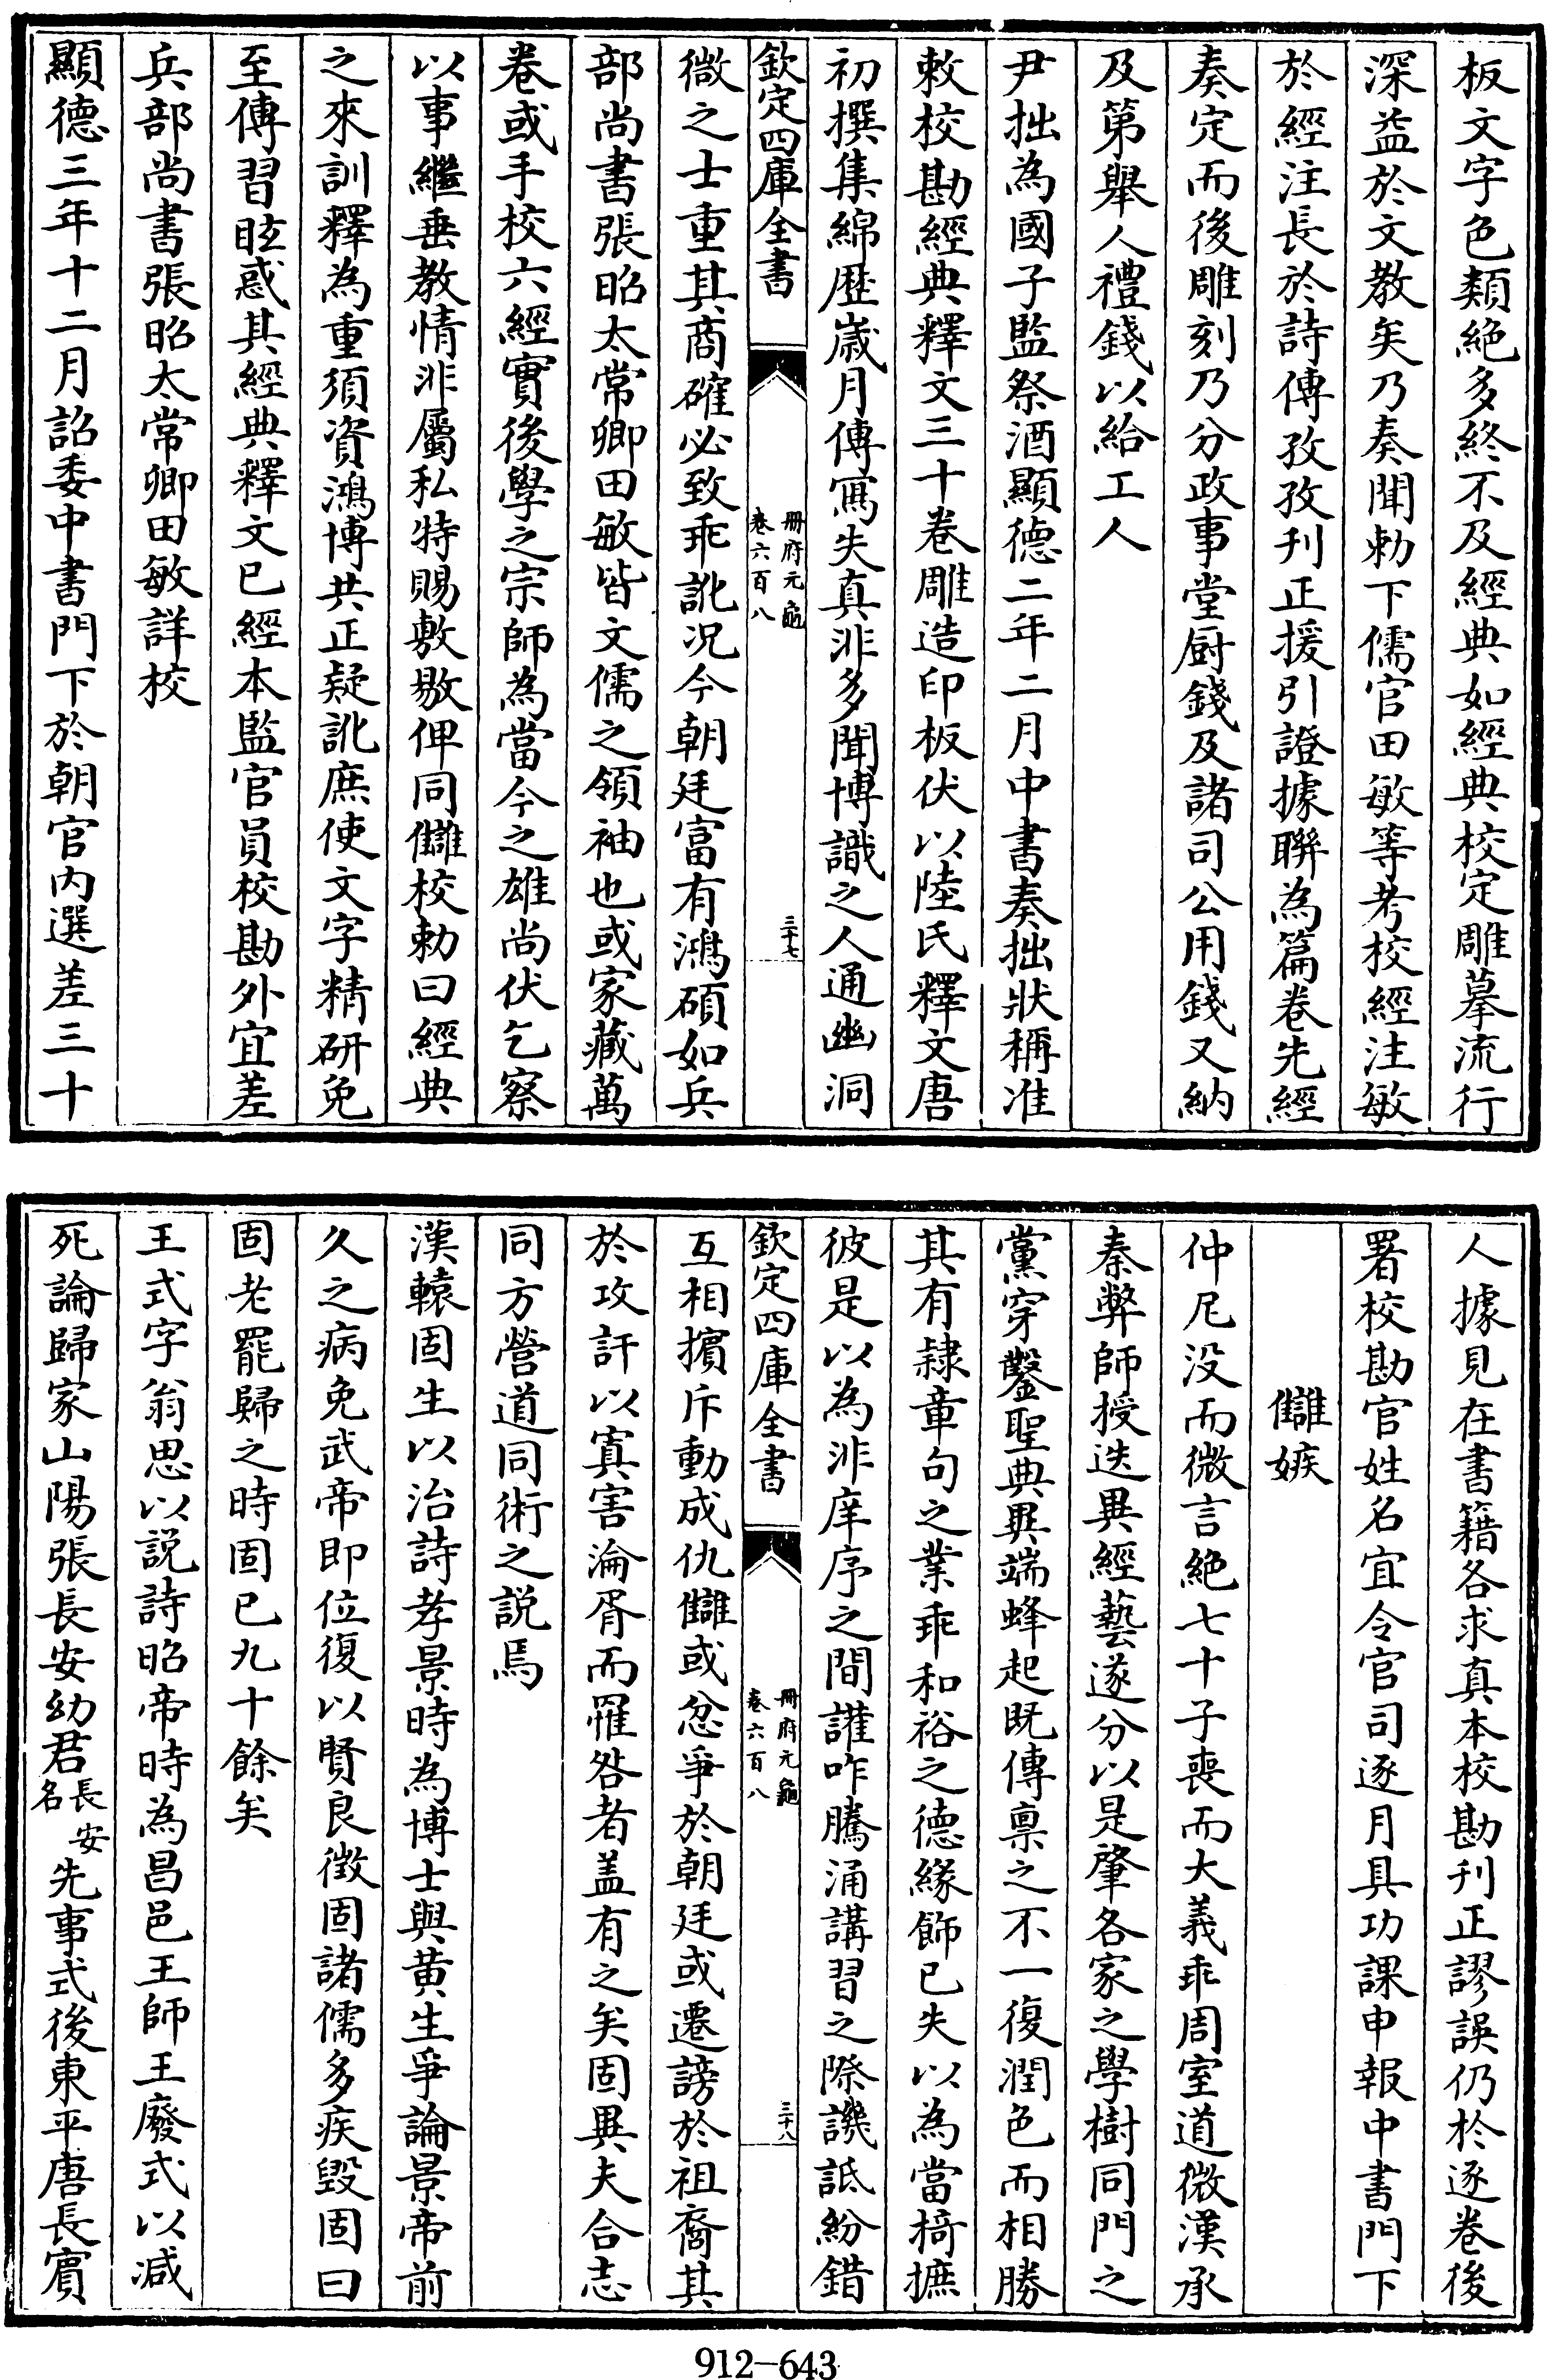 板文字色類絶多終不及經典如經典校定雕摹流行
深益於文教矣乃奏聞勅下儒官田敏等考校經注敏
於經注長於詩傳孜孜刋正援引證據聨為篇卷先經
奏定而後雕刻乃分政事堂厨錢及諸司公用錢又納
及第舉人禮錢以給工人
尹拙為國子監祭酒顯德二年二月中書奏拙狀稱准
敕校勘經典釋文三十卷雕造印板伏以陸氏釋文唐
初撰集綿歴歳月傳寫失真非多聞博識之人通幽洞
欽定四庫全書
冊府元龜
卷六百八
三十七
微之士重其商確必致乖訛况今朝廷富有鴻碩如兵
部尚書張昭太常卿田敏皆文儒之領袖也或家藏萬
卷或手校六經實後學之宗師為當今之雄尚伏乞察
以事繼垂教情非屬私特賜敷敭俾同讎校勅曰經典
之來訓釋為重須資鴻博共正疑訛庶使文字精研免
至傳習眩惑其經典釋文已經本監官員校勘外宜差
兵部尚書張昭太常卿田敏詳校
顯德三年十二月詔委中書門下於朝官内選差三十
人據見在書籍各求真本校勘刋正謬誤仍於逐卷後
署校勘官姓名宜令官司逐月具功課申報中書門下
讎嫉
仲尼没而微言絶七十子喪而大義乖周室道微漢承
秦弊師授迭異經藝遂分以是肇各家之學樹同門之
黨穿鑿聖典異端蜂起既傳禀之不一復潤色而相勝
其有隷章句之業乖和裕之德緣飾已失以為當掎摭
彼是以為非庠序之間讙咋騰涌講習之際譏詆紛錯
欽定四庫全書
冊府元龜
卷六百八
三十八
互相擯斥動成仇讎或忿爭於朝廷或遷謗於祖裔其
於攻訐以寘害淪胥而罹咎者盖有之矣固異夫合志
同方營道同術之説焉
漢轅固生以治詩孝景時為博士與黄生爭論景帝前
久之病免武帝即位復以賢良徴固諸儒多疾毀固曰
固老罷歸之時固已九十餘矣
王式字翁思以説詩昭帝時為昌邑王師王廢式以减
死論歸家山陽張長安幼君長安名先事式後東平唐長賓
912-643